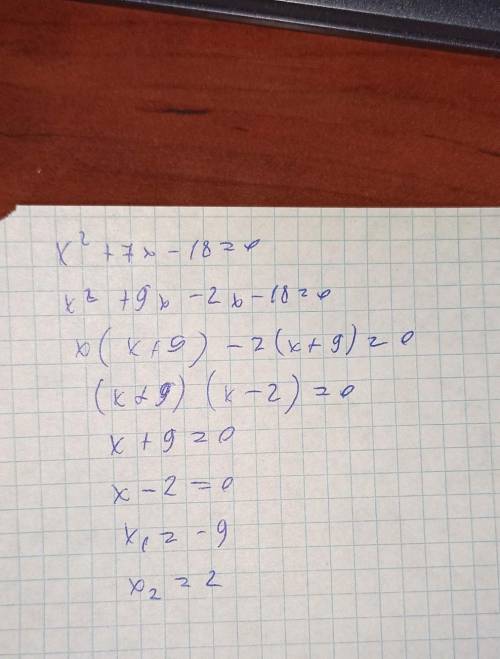 x² + 7x - 18 = 0
x² + 9x - 2x - 18 = 0
x(x + 9) - 2(x + 9) = 0
(x + 9)(x - 2) = 0
x + 9 = 0
x - 2 = 0
x₁ = -9
x₂ = 2